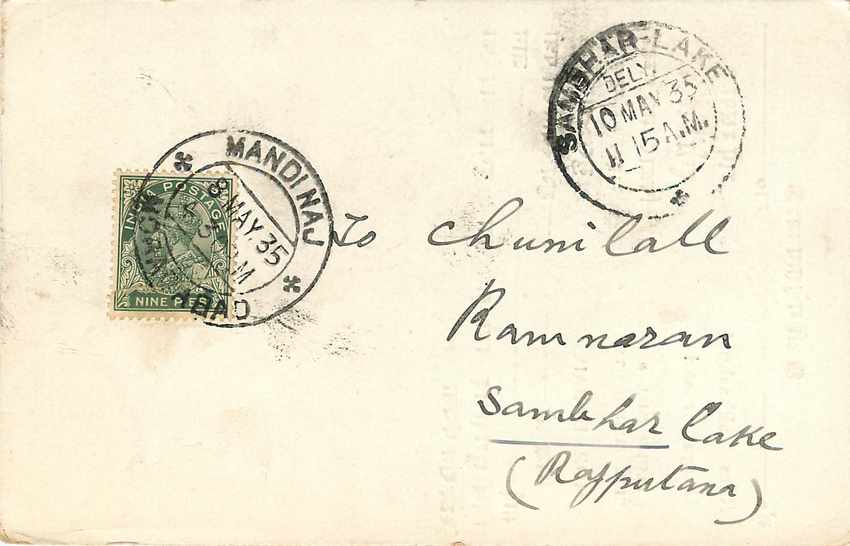 SAMBHAR-LAKE
DELY.
10 MAY 35
11 15 A.M.
MANDI NAJ
IBABAD
8 MAY. 35
INDIA POSTAGE
NINE PIES
To Chunilall
Ramnaran
Sambhar Lake
(Rajputana)